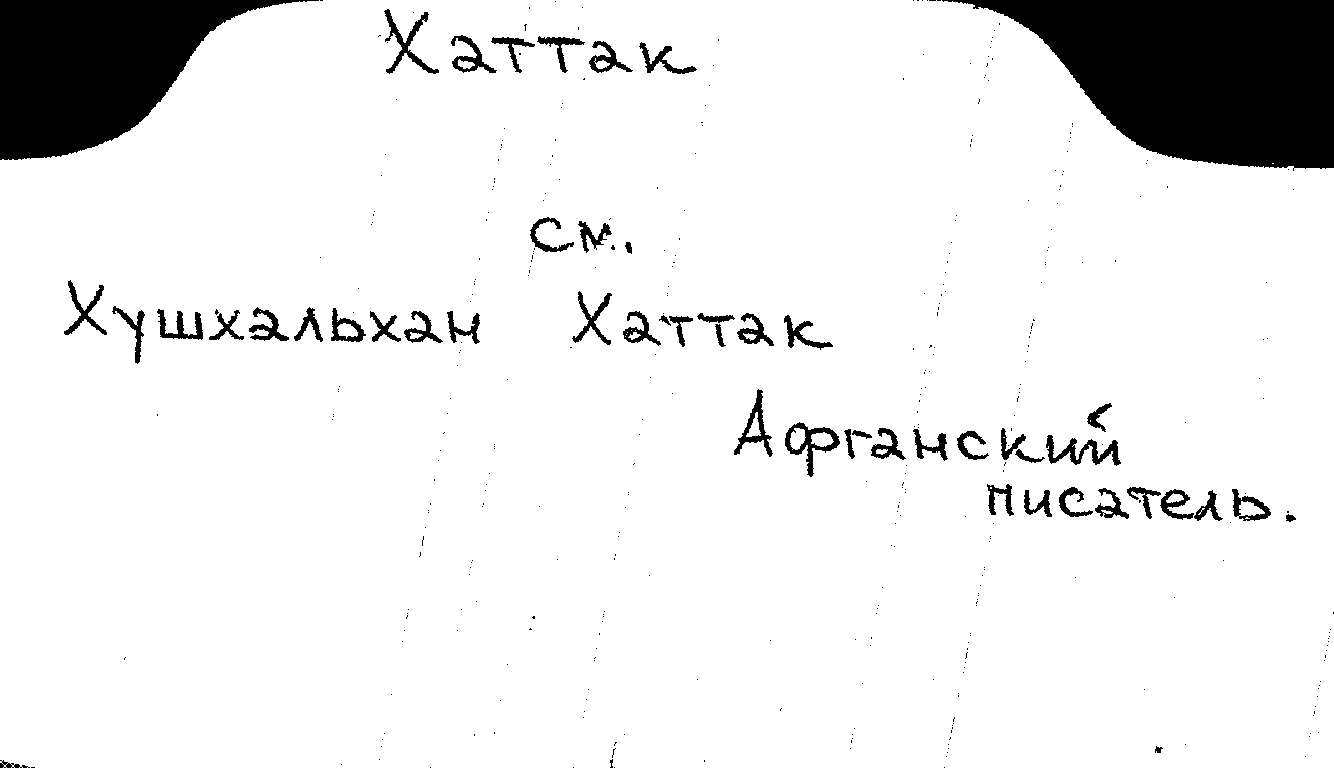 Хаттак
см.
Хушхальхан Хаттак
Афганский
писатель.